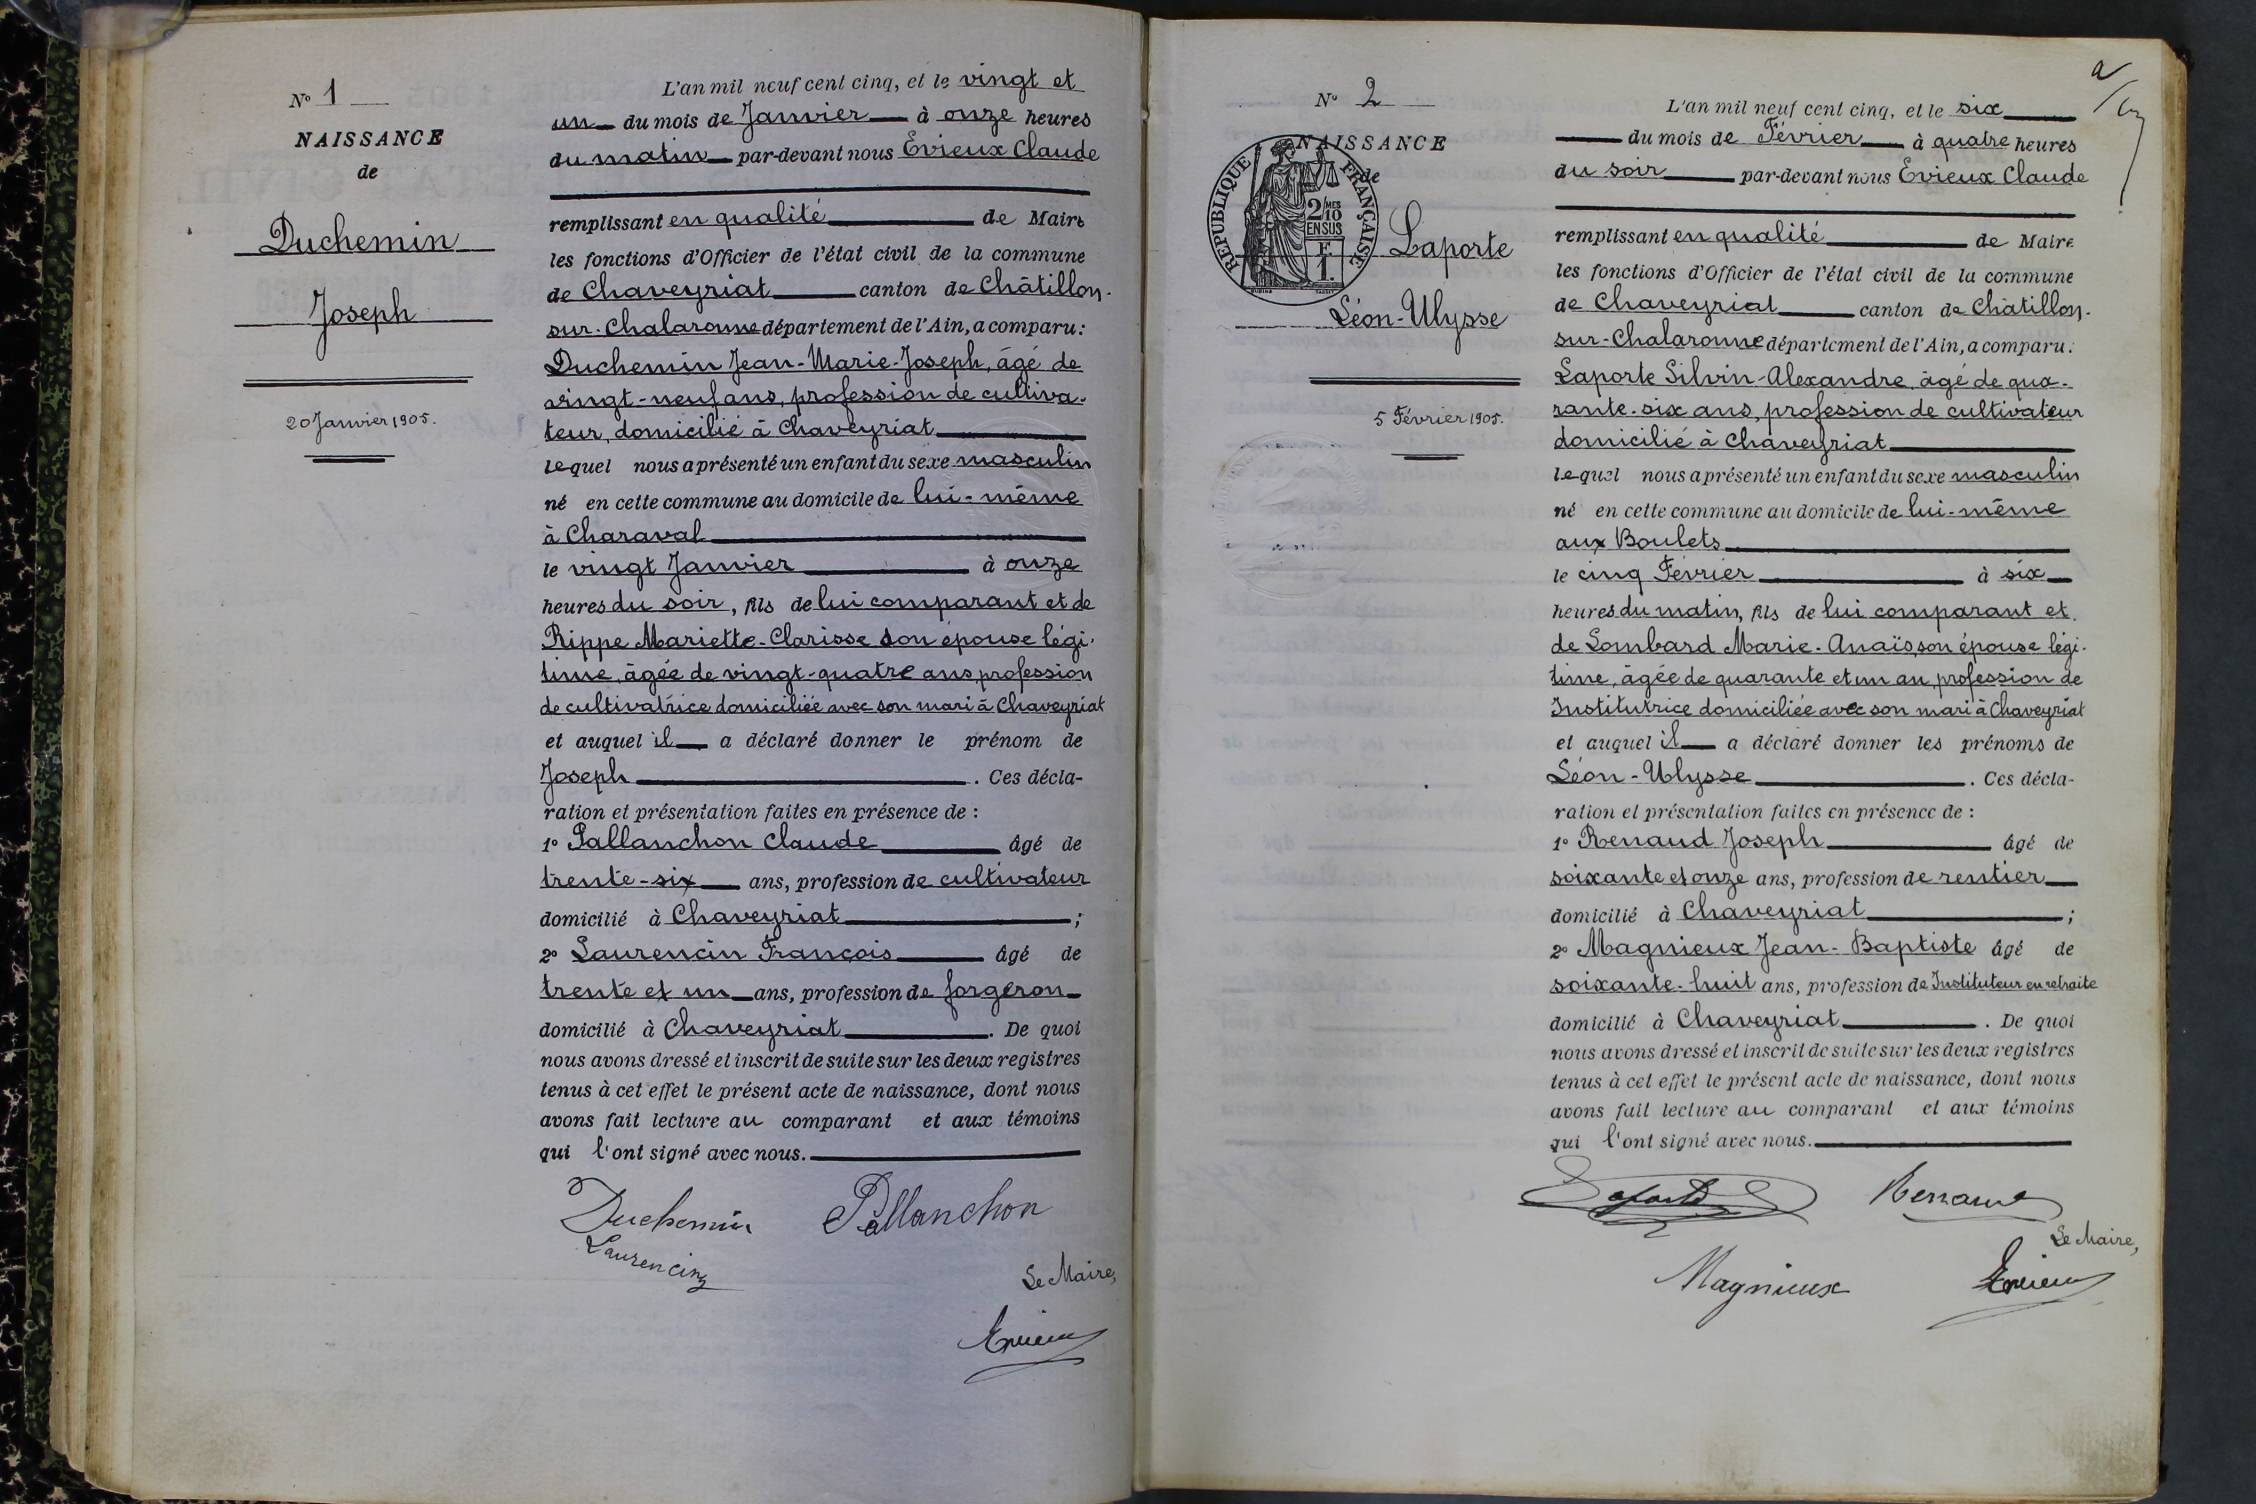 N° 1
NAISSANCE
de
Duchemin
Joseph
20 Janvier 1905.
L'an mil neuf cent cinq, et le vingt et
un du mois de Janvier à onze heures
du matin par-devant nous Evieux Claude
remplissant en qualité de Maire
les fonctions d'Officier de l'état civil de la commune
de Chaveyriat canton de Châtillon-
sur-Chalaronne département de l'Ain, a comparu :
Duchemin Jean-Marie-Joseph, âgé de
vingt-neuf ans, profession de cultiva-
teur, domicilié à Chaveyriat
lequel nous a présenté un enfant du sexe masculin
né en cette commune au domicile de lui-même
à Charaval
le vingt Janvier à onze
heures du soir, fils de lui comparant et de
Rippe Mariette-Clarisse son épouse légi-
time, âgée de vingt-quatre ans, profession
de cultivatrice domiciliée avec son mari à Chaveyriat
et auquel il a déclaré donner le prénom de
Joseph . Ces décla-
ration et présentation faites en présence de :
1° Pallanchon Claude âgé de
trente-six ans, profession de cultivateur
domicilié à Chaveyriat ;
2° Laurencin François âgé de
trente et un ans, profession de forgeron
domicilié à Chaveyriat . De quoi
nous avons dressé et inscrit de suite sur les deux registres
tenus à cet effet le présent acte de naissance, dont nous
avons fait lecture au comparant et aux témoins
qui l'ont signé avec nous.
Duchemin Pallanchon
Laurencin
Le Maire,
Evieux
N° 2
NAISSANCE
de
REPUBLIQUE FRANÇAISE
2/10 MES
EN SUS
F
1.
Laporte
Léon-Ulysse
5 Février 1905.
L'an mil neuf cent cinq, et le six
du mois de Février à quatre heures
du soir par-devant nous Evieux Claude
remplissant en qualité de Maire
les fonctions d'Officier de l'état civil de la commune
de Chaveyriat canton de Châtillon-
sur-Chalaronne département de l'Ain, a comparu :
Laporte Silvin-Alexandre, âgé de qua-
rante-six ans, profession de cultivateur
domicilié à Chaveyriat
lequel nous a présenté un enfant du sexe masculin
né en cette commune au domicile de lui-même
aux Boulets
le cinq Février à six
heures du matin, fils de lui comparant et
de Lombard Marie-Anaïs, son épouse légi-
time, âgée de quarante et un an, profession de
Institutrice domiciliée avec son mari à Chaveyriat
et auquel il a déclaré donner les prénoms de
Léon-Ulysse . Ces décla-
ration et présentation faites en présence de :
1° Renaud Joseph âgé de
soixante et onze ans, profession de rentier
domicilié à Chaveyriat ;
2° Magnieux Jean-Baptiste âgé de
soixante-huit ans, profession de Instituteur en retraite
domicilié à Chaveyriat . De quoi
nous avons dressé et inscrit de suite sur les deux registres
tenus à cet effet le présent acte de naissance, dont nous
avons fait lecture au comparant et aux témoins
qui l'ont signé avec nous.
Laporte Renaud
Le Maire,
Magnieux Evieux